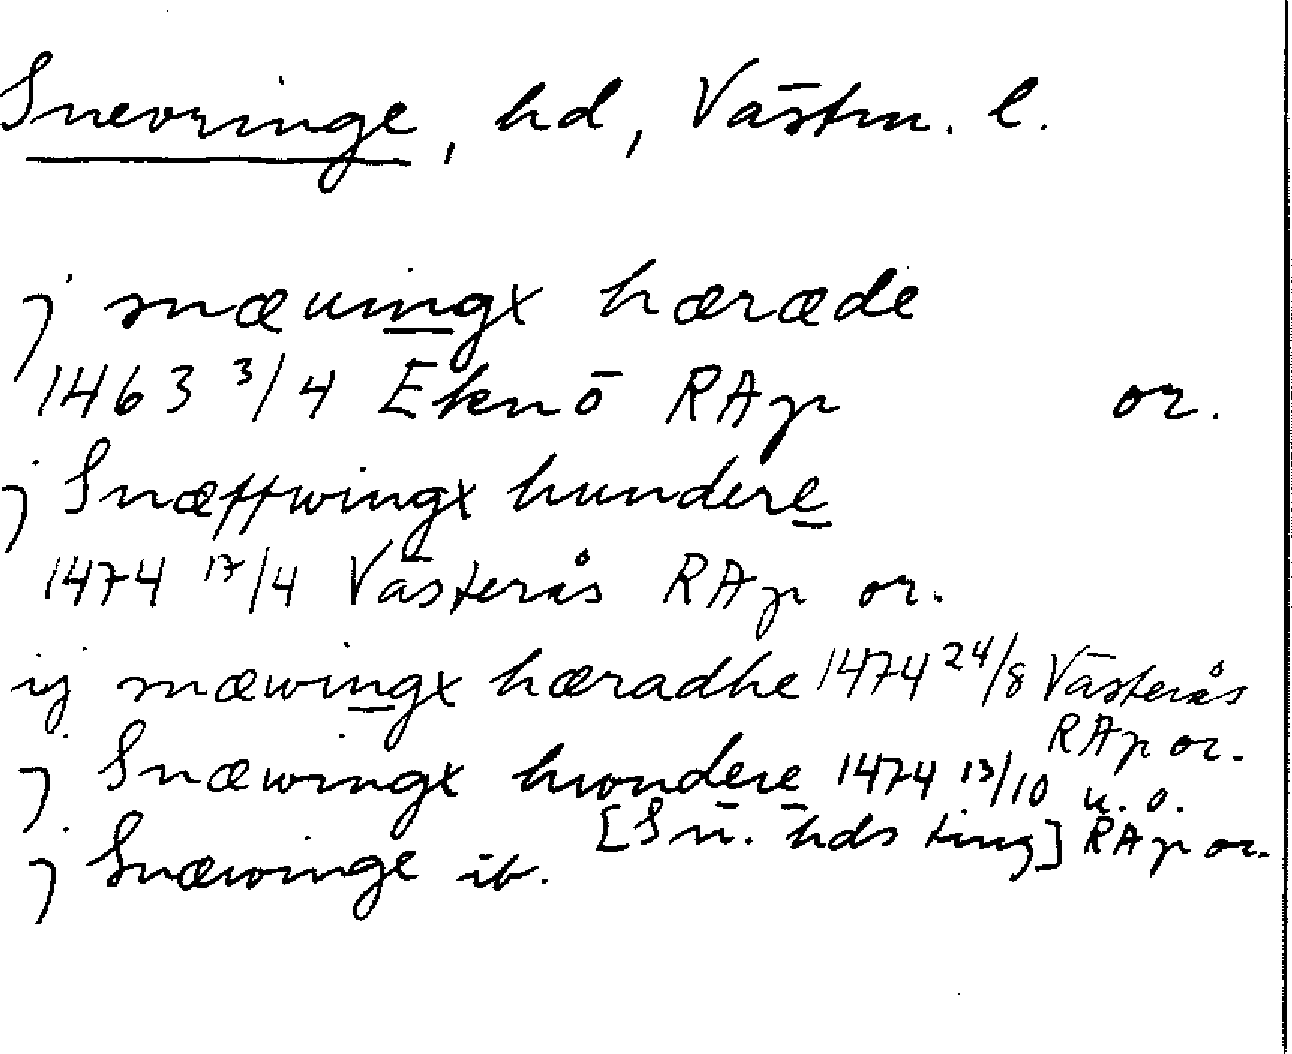 Snevringe, hd, Västm. l.
j snæuingx hæræde
1463 3/4 Eknö RAp or.
j Snæffwingx hundere
1474 17/4 Västerås RAp or.
ij snæwingx hæradhe 1474 24/8 Västerås
RAp or.
j Snæwingx hwndere 1474 13/10 u. o.
[Sn. hds ting] RAp or.
j Snæwinge ib.